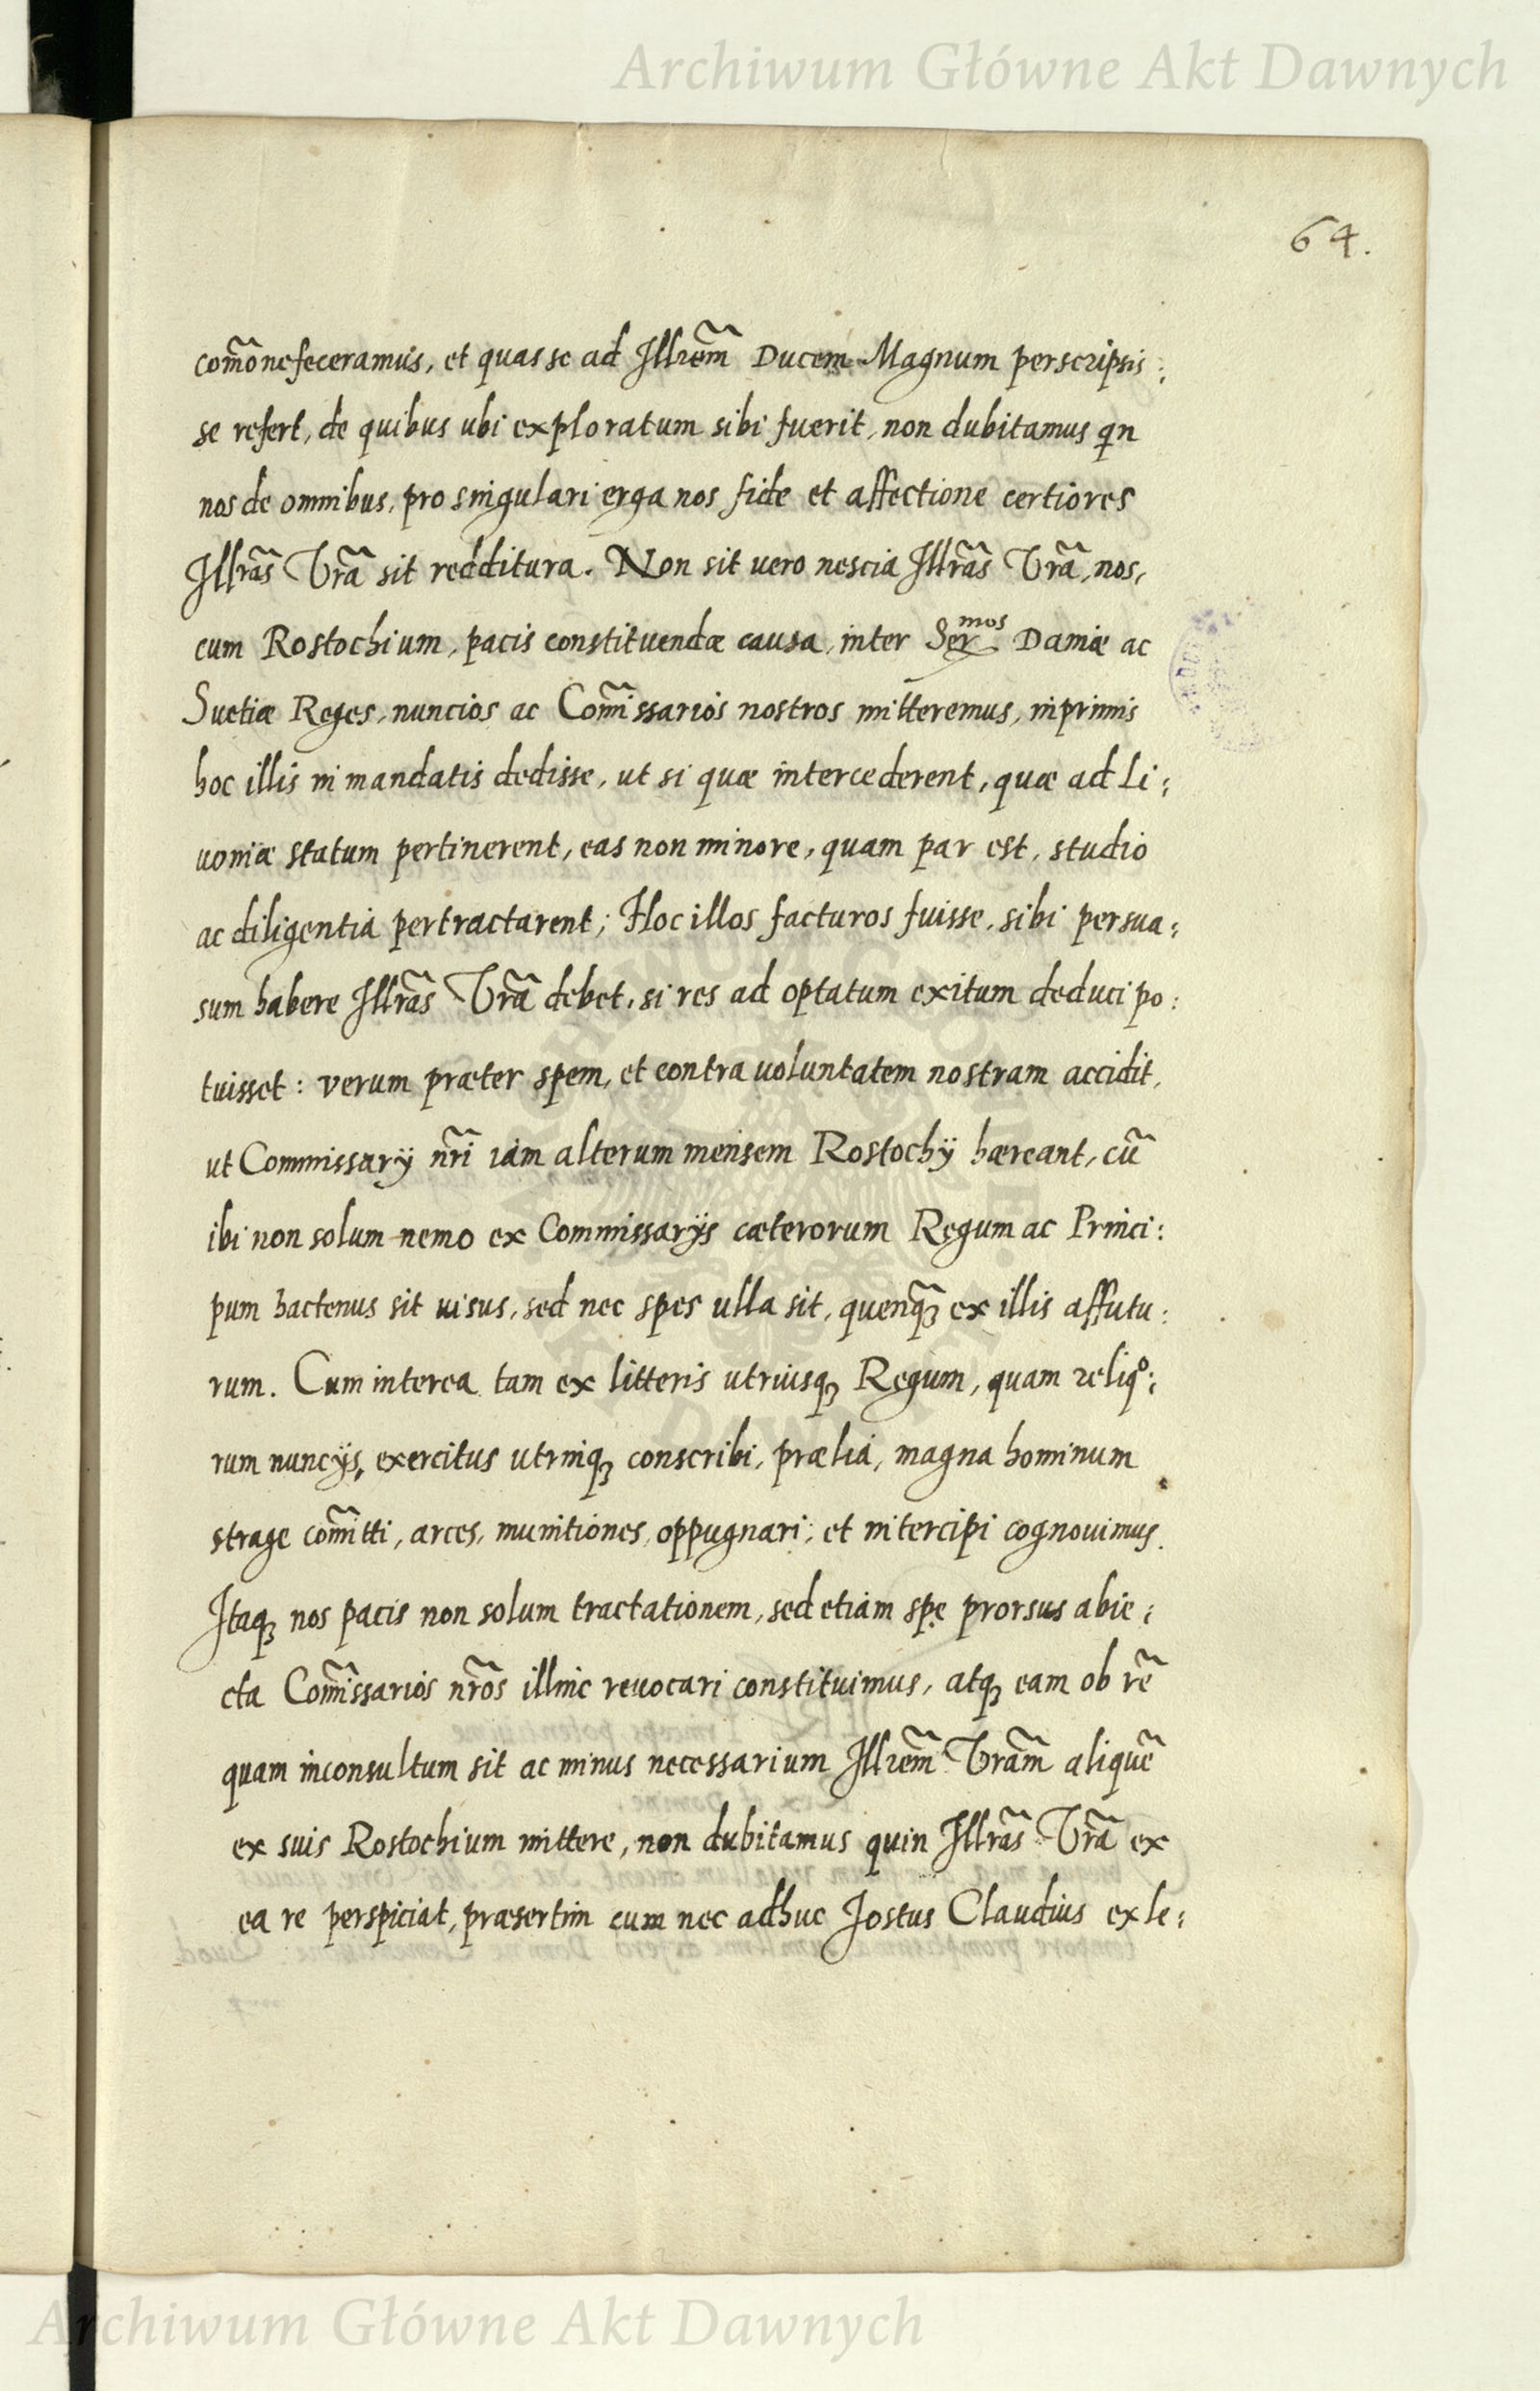 Archiwum Główne Akt Dawnych
64.
com̃onefeceramus, et quas se ad Illrem̃ Ducem Magnum perscripsis:
se refert, de quibus ubi exploratum sibi fuerit, non dubitamus qin
nos de omnibus, pro singulari erga nos fide et affectione certiores
Illrãs Vrã sit redditura. Non sit uero nescia Illrãs Vrã, nos,
cum Rostochium, pacis constituendæ causa, inter Serᵐᵒˢ Daniæ ac
Suetiæ Reges, nuncios ac Com̃issarios nostros mitteremus, inprimis
hoc illis in mandatis dedisse, ut si quæ intercederent, quæ ad Li:
uoniæ statum pertinerent, eas non minore, quam par est, studio
ac diligentia pertractarent; Hoc illos facturos fuisse, sibi persua:
sum habere Illrãs Vrã debet, si res ad optatum exitum deduci po:
tuisset: verum præter spem, et contra uoluntatem nostram accidit,
ut Commissarÿ nr̃i iam alterum mensem Rostochÿ hæreant, cũ
ibi non solum nemo ex Commissarÿs cæterorum Regum ac Princi:
pum hactenus sit uisus, sed nec spes ulla sit, quenq̃ꝫ ex illis affutu:
rum. Cum interea tam ex litteris utriusqꝫ Regum, quam reliqᵒ:
rum nuncÿs, exercitus utrinqꝫ conscribi, prælia, magna hominum
strage com̃itti, arces, munitiones, oppugnari, et intercipi cognouimus.
Itaqꝫ nos pacis non solum tractationem, sed etiam spe prorsus abie:
cta Com̃issarios nr̃os illinc reuocari constituimus, atqꝫ eam ob rẽ
quam inconsultum sit ac minus necessarium Illrem̃ Vram̃ aliquẽ
ex suis Rostochium mittere, non dubitamus quin Illrãs Vrã ex
ea re perspiciat, præsertim cum nec adhuc Jostus Claudius ex le:
Archiwum Główne Akt Dawnych